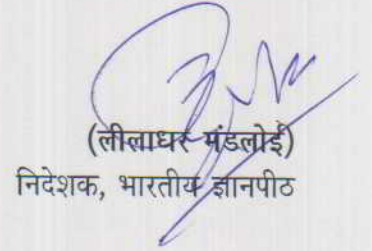 (लीलाधर मंडलोई)
निदेशक, भारतीय ज्ञानपीठ